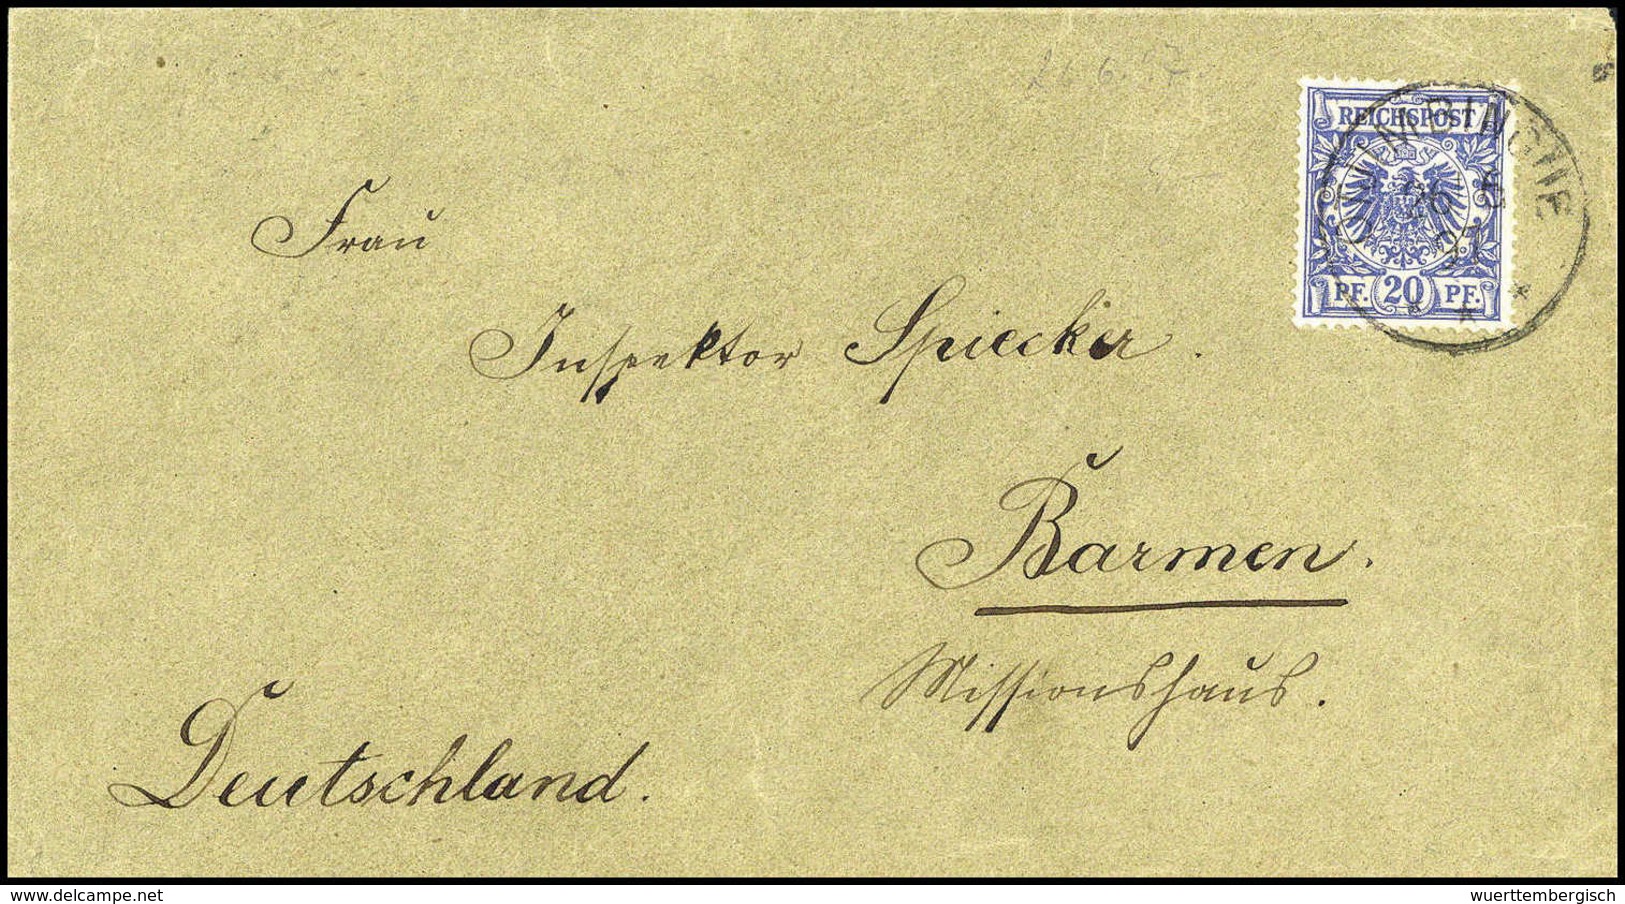 26.6.97
REICHSPOST
PF. 20 PF.
OTJIMBINGUE
26 6
97
Frau
Inspektor Spiecker.
Barmen.
Missionshaus.
Deutschland.
delcampe.net
wuerttembergisch